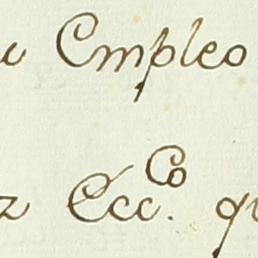 u Empleo
z Ecc.co qu